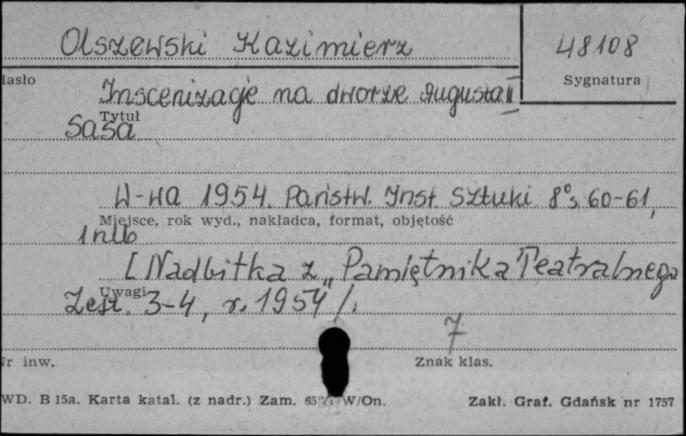 Olszewski Kazimierz
48108
Hasło
Sygnatura
Inscenizacje na dworze Augusta II
Tytuł
Sasa
W-wa 1954. Państw. Inst. Sztuki 8°, 60-61,
Miejsce, rok wyd., nakładca, format, objętość
1 nlb
[Nadbitka z "Pamiętnika Teatralnego
Uwagi
Zesz. 3-4, r. 1954/.
7
Nr inw.
Znak klas.
WD. B 15a. Karta katal. (z nadr.) Zam. W/On.
Zakł. Graf. Gdańsk nr 1757